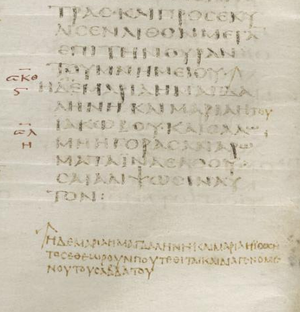 ΤΡΑϹΚΑΙΠΡΟϹΕΚΥ
ΛΙϹΕΝΛΙΘΟΝΜΕΓΑ
ΕΠΙΤΗΝΘΥΡΑΝ
ΤΟΥΜΝΗΜΕΙΟΥ
ΗΔΕΜΑΡΙΑΗΜΑΓΔΑ
ΛΗΝΗΚΑΙΜΑΡΙΑΗΤΟΥ
ΙΑΚΩΒΟΥΚΑΙϹΑΛΩ
ΜΗΗΓΟΡΑϹΑΝΑΡΩ
ΜΑΤΑΪΝΑΕΛΘΟΥ
ϹΑΙΑΛΙΨΩϹΙΝΑΥ
ΤΟΝ:
ΗΔΕΜΑΡΙΑΗΜΑΓΔΑΛΗΝΗΚΑΙΜΑΡΙΑΗΪΩϹΗ
ΤΟϹΕΘΕΩΡΟΥΝΠΟΥΤΕΘΙΤΑΙΚΑΙΔΙΑΓΕΝΟΜΕ
ΝΟΥΤΟΥϹΑΒΒΑΤΟΥ